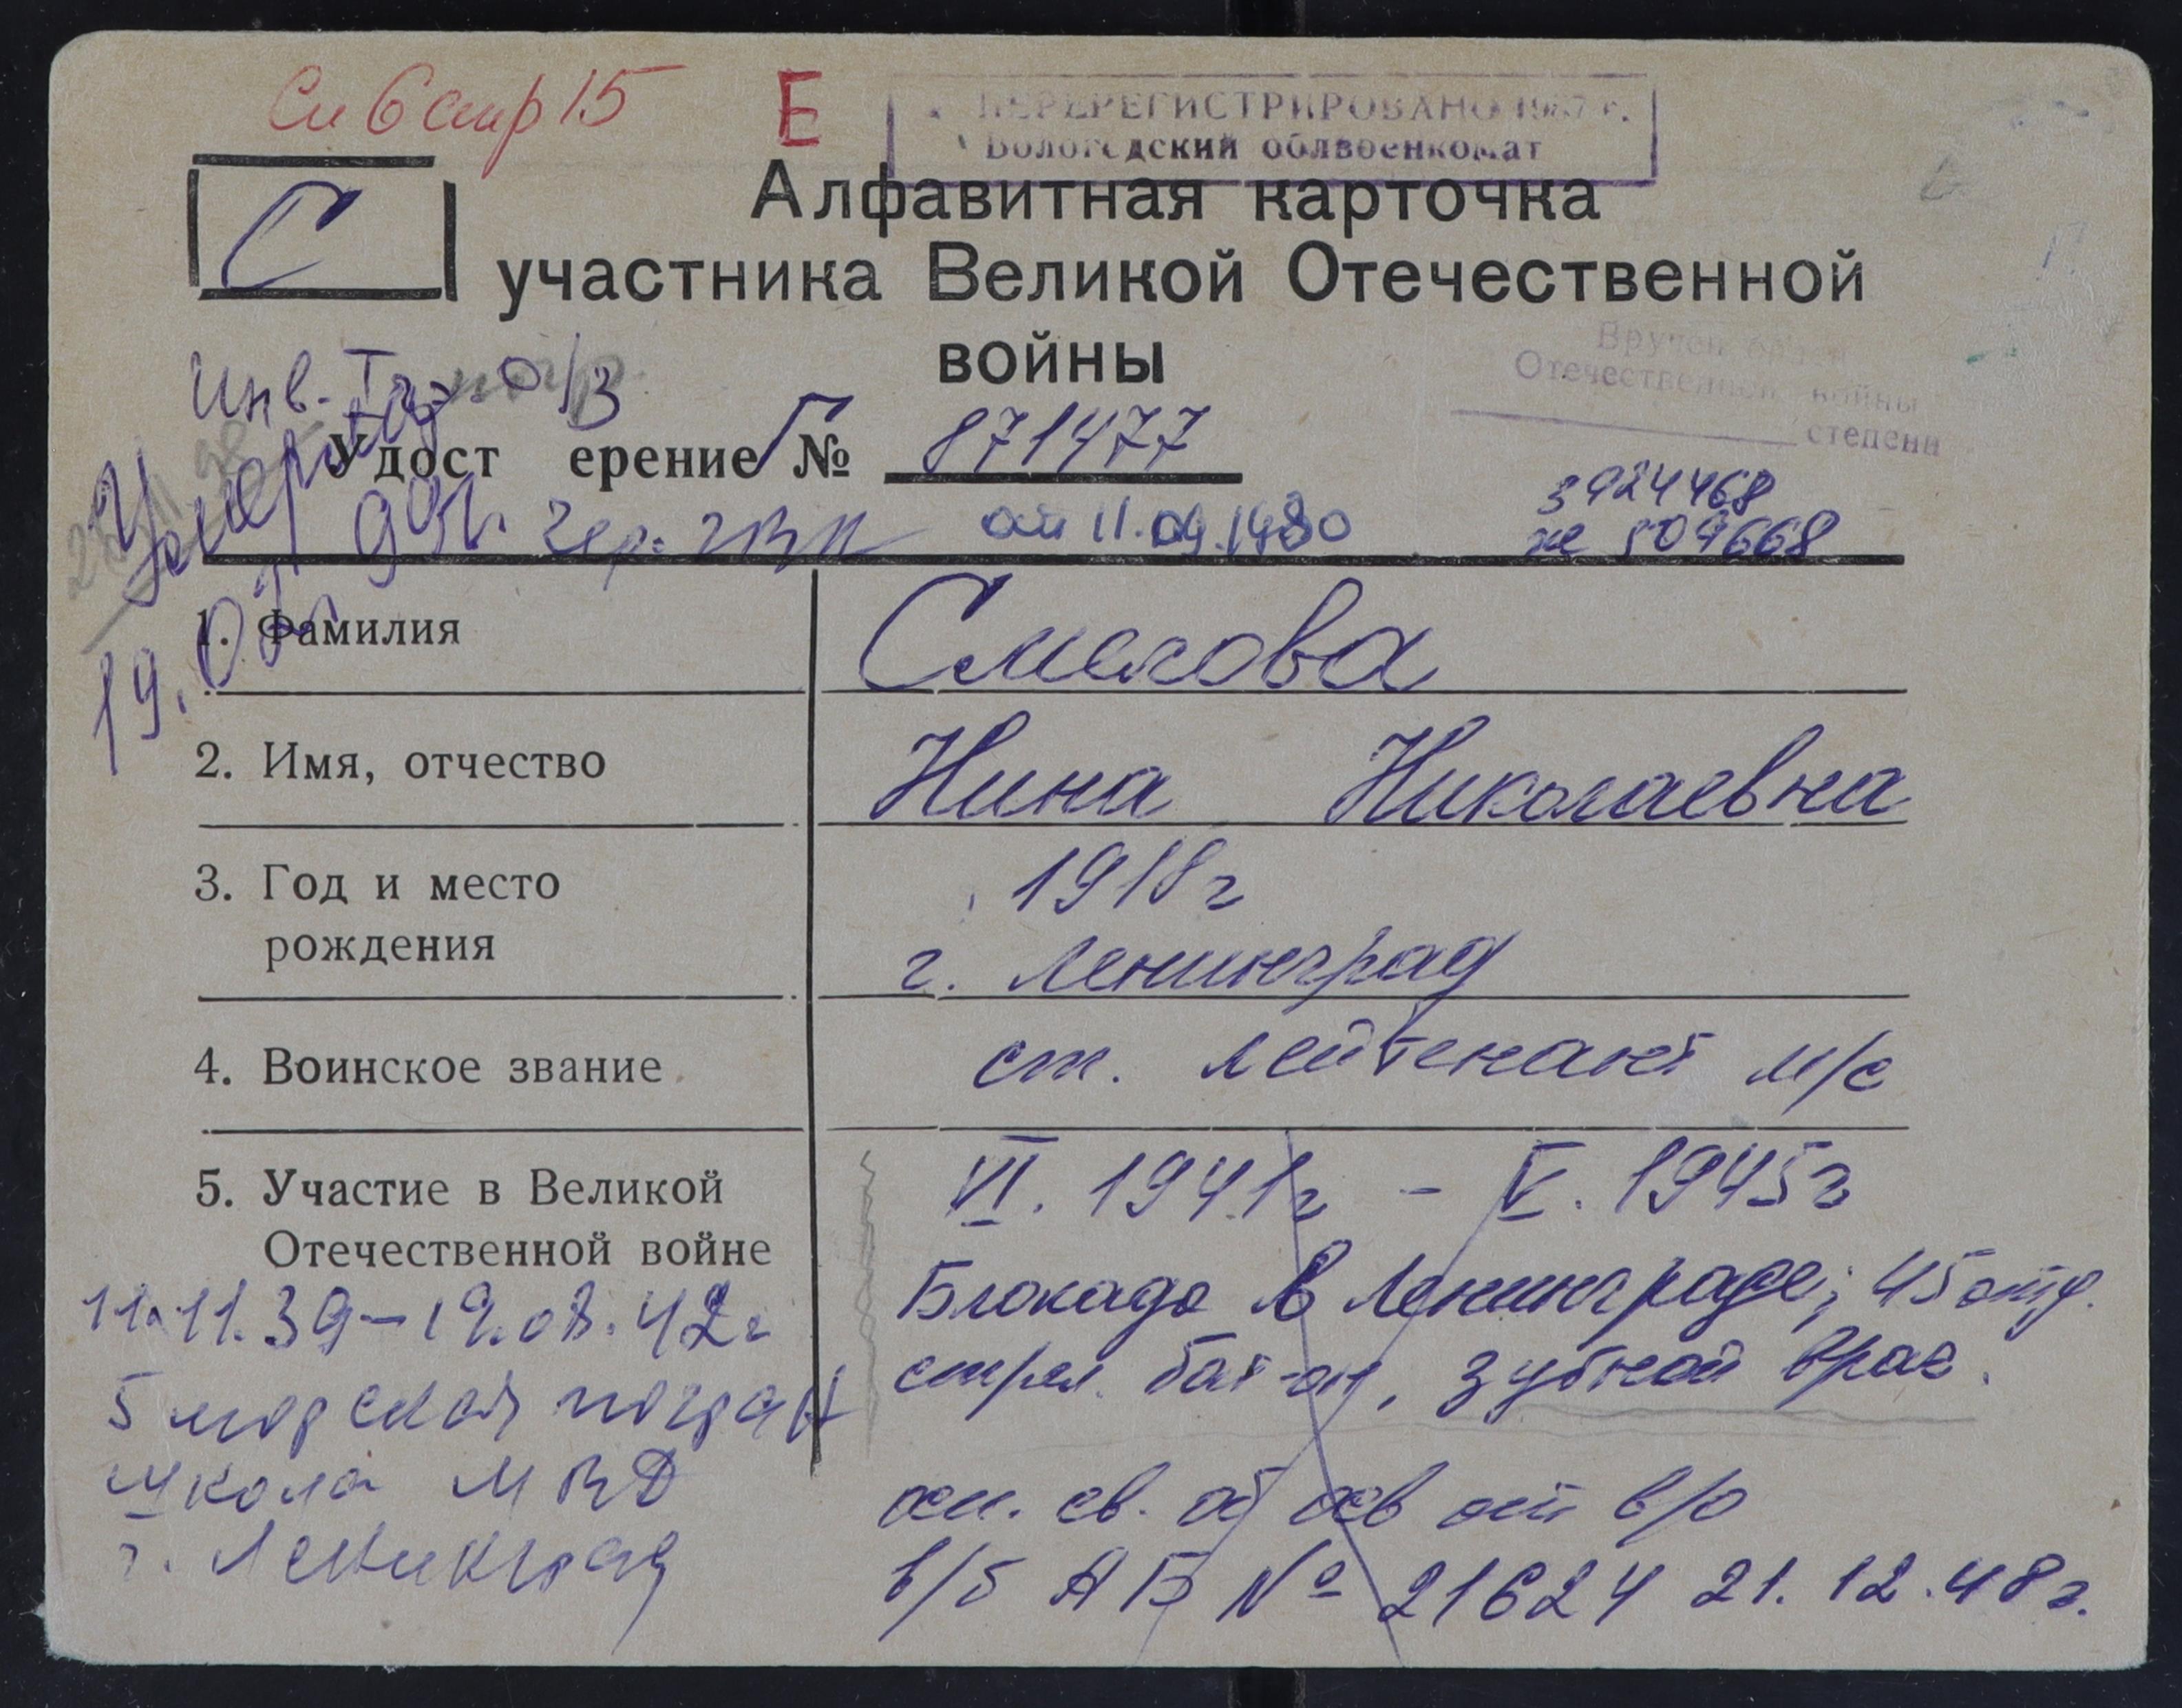 См 6 стр 15
Е
ПЕРЕРЕГИСТРИРОВАНО 1987 г.
Вологодский облвоенкомат
С
Алфавитная карточка
участника Великой Отечественной
войны
Инв. I гр. о/з
Вручен орден
Отечественной войны
степени
Удост ерение Г № 871477
Умерла
19.05. 99г.
Чер. ГВК
от 11.09.1980
3924468
не 509668
1. Фамилия
Смелова
2. Имя, отчество
Нина Николаевна
3. Год и место
рождения
1918г
г. Ленинград
4. Воинское звание
ст. лейтенант м/с
5. Участие в Великой
Отечественной войне
VI. 1941г - V. 1945г
Блокада в Ленинграде; 45 отд.
стрел. бат-он, зубной врач.
11.11.39-19.08.42г
5 морской погран
школа МВД
г. Ленинград
осн. св. об осв от в/о
в/б АБ № 21624 21.12.48г.